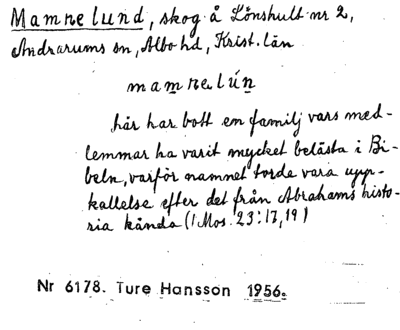 Mamrelund, skog å Lönshult nr 2,
Andrarums sn, Albo hd, Krist. län
mamrelún
här har bott en familj vars med-
lemmar ha varit mycket belästa i Bi-
beln, varför namnet torde vara upp-
kallelse efter det från Abrahams histo-
ria kända (1 Mos. 23:17,19)
Nr 6178. Ture Hansson 1956.